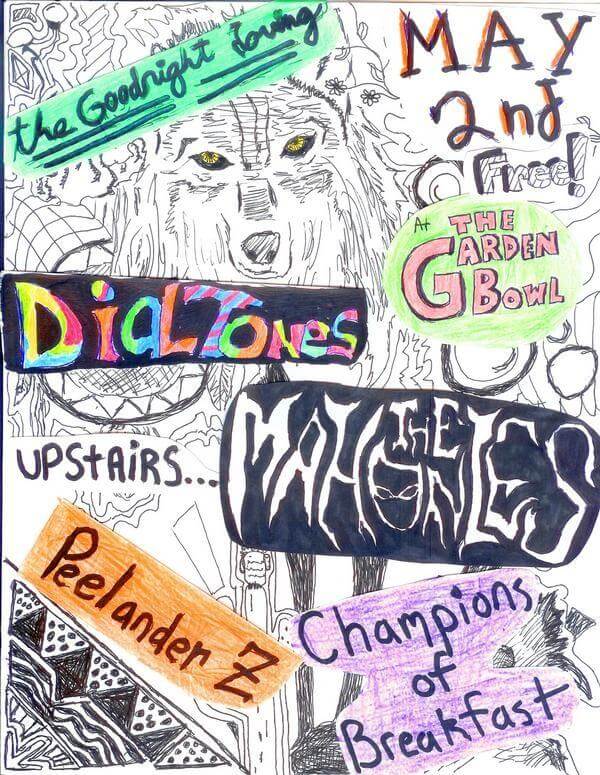 the Goodnight Loving
MAY
2nd
Free!
At THE
GARDEN
BOWL
DialTones
THE
MAHONIES
UPStAiRS...
Peelander Z
Champions
of
Breakfast